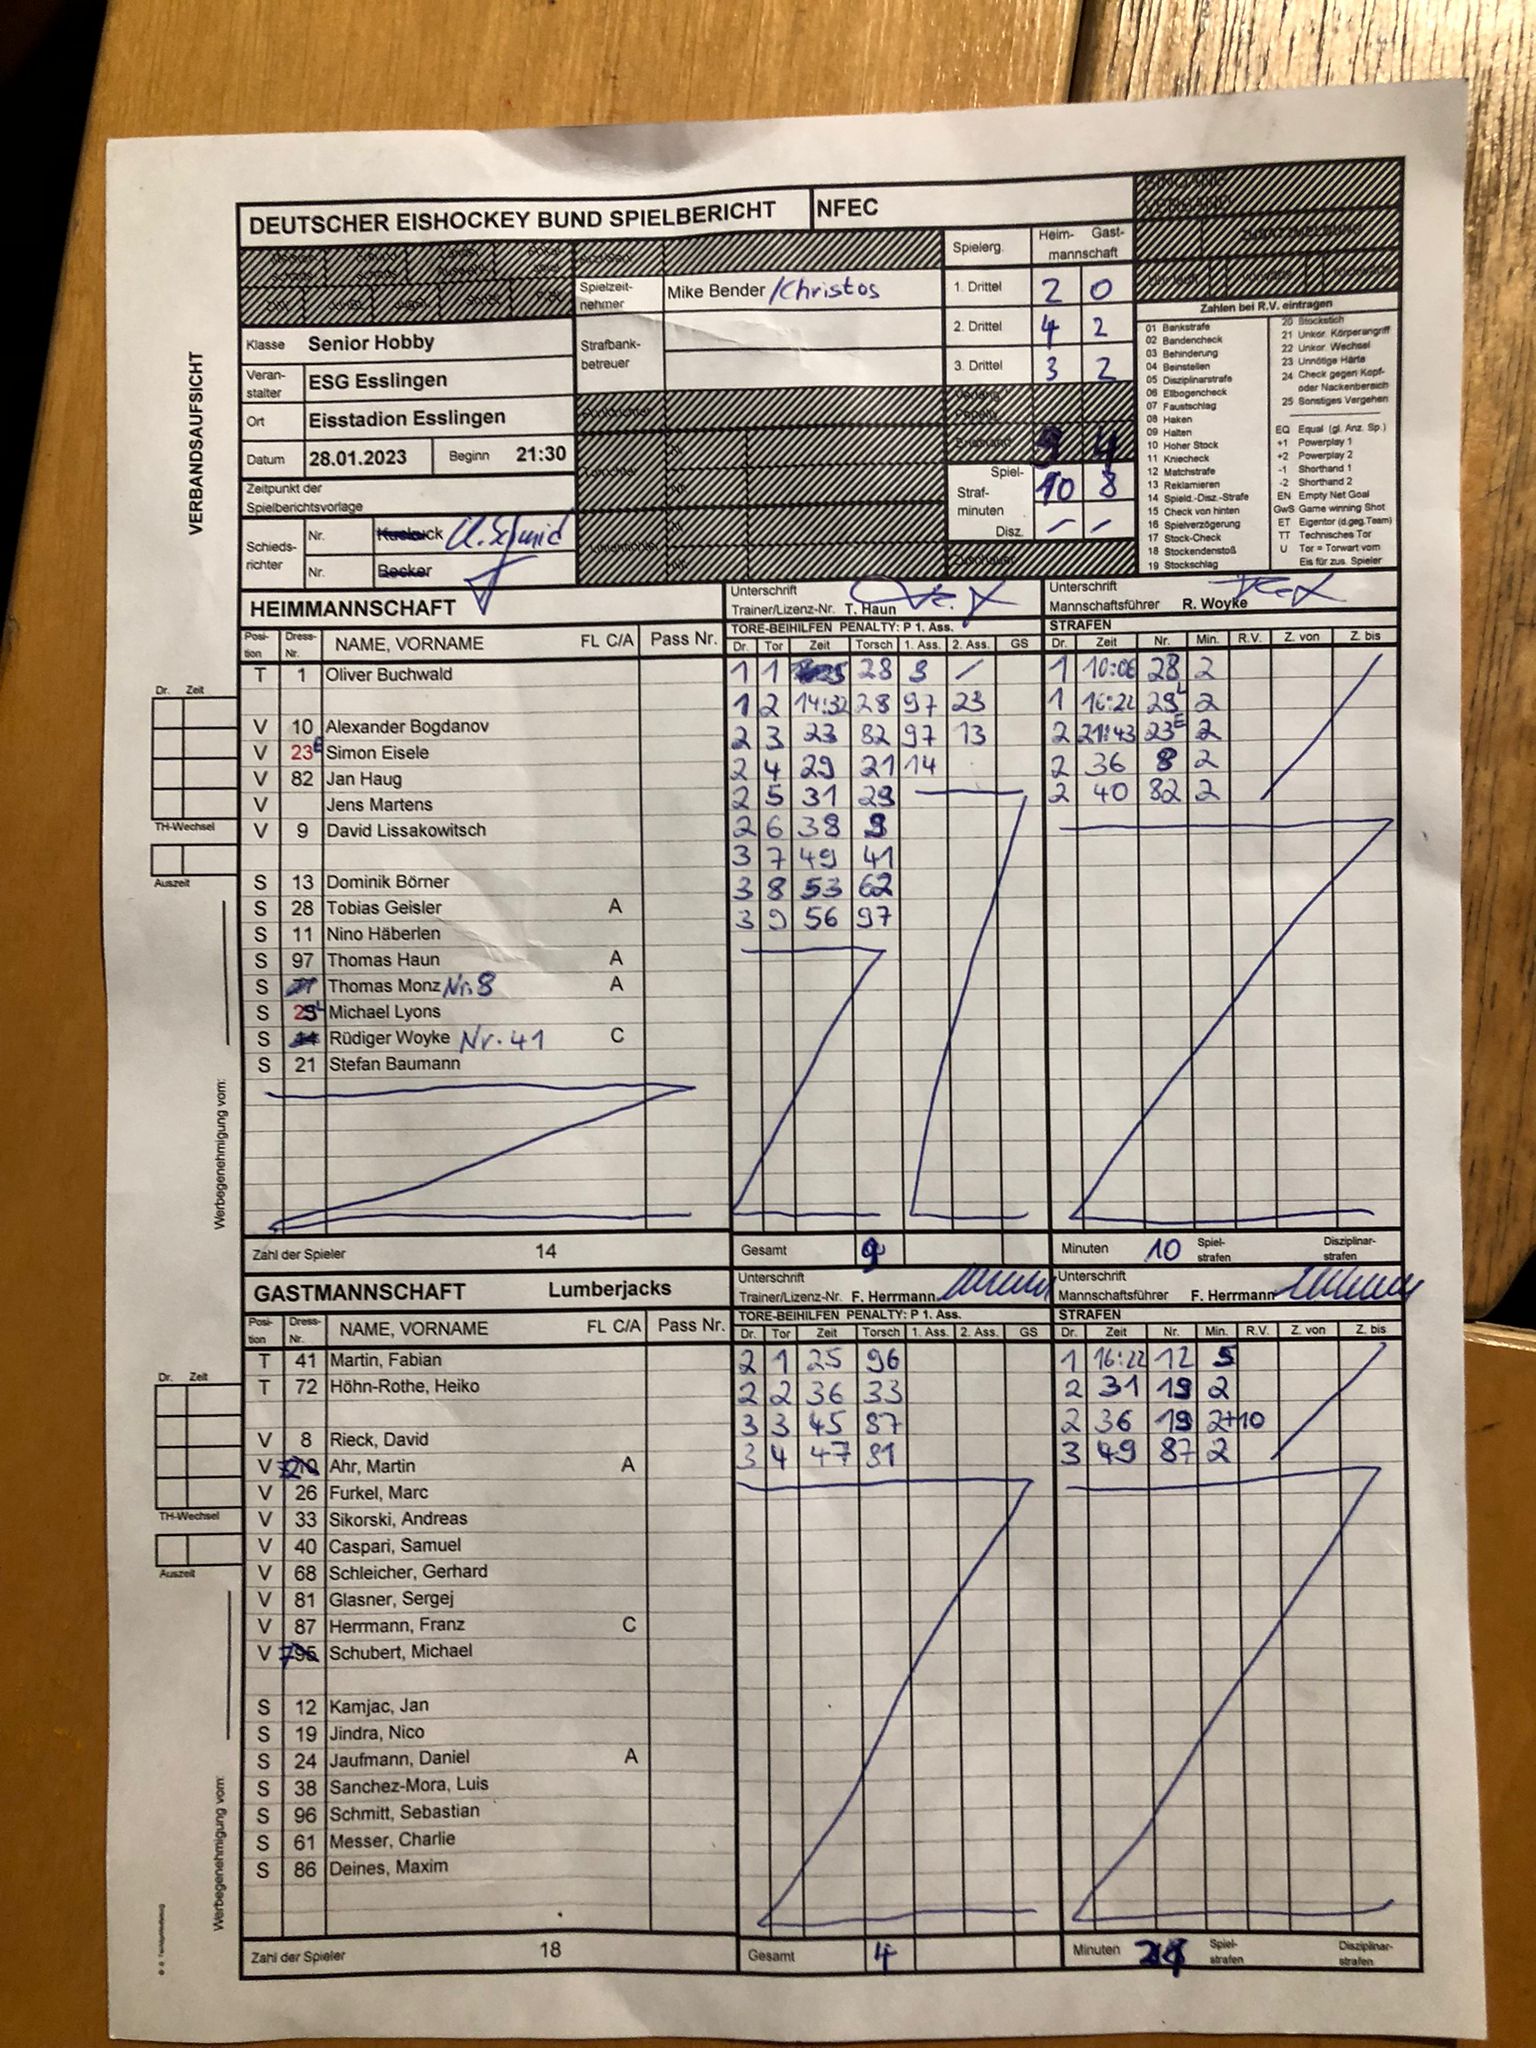 DEUTSCHER EISHOCKEY BUND SPIELBERICHT NFEC
Spielerg. Heim- Gast-
mannschaft
Spielzeit-
nehmer Mike Bender /Christos
1. Drittel 2 0
2. Drittel 4 2
3. Drittel 3 2
Strafbank-
betreuer
Klasse Senior Hobby
Veran-
stalter ESG Esslingen
Ort Eisstadion Esslingen
Datum 28.01.2023 Beginn 21:30
Zeitpunkt der
Spielberichtsvorlage
Schieds-
richter Nr.
Nr. Becker
9 4
Spiel- 10 8
Straf-
minuten
Disz. – –
Zahlen bei R.V. eintragen
01 Bankstrafe
02 Bandencheck
03 Behinderung
04 Beinstellen
05 Disziplinarstrafe
06 Ellbogencheck
07 Faustschlag
08 Haken
09 Halten
10 Hoher Stock
11 Kniecheck
12 Matchstrafe
13 Reklamieren
14 Spield.-Disz.-Strafe
15 Check von hinten
16 Spielverzögerung
17 Stock-Check
18 Stockendenstoß
19 Stockschlag
20 Stockstich
21 Unkor. Körperangriff
22 Unkor. Wechsel
23 Unnötige Härte
24 Check gegen Kopf-
oder Nackenbereich
25 Sonstiges Vergehen
EQ Equal (gl. Anz. Sp.)
+1 Powerplay 1
+2 Powerplay 2
-1 Shorthand 1
-2 Shorthand 2
EN Empty Net Goal
GwS Game winning Shot
ET Eigentor (d.geg.Team)
TT Technisches Tor
U Tor = Torwart vom
Eis für zus. Spieler
VERBANDSAUFSICHT
HEIMMANNSCHAFT
Unterschrift
Trainer/Lizenz-Nr. T. Haun
Unterschrift
Mannschaftsführer R. Woyke
Posi-
tion Dress-
Nr. NAME, VORNAME FL C/A Pass Nr.
T 1 Oliver Buchwald
V 10 Alexander Bogdanov
V 23E Simon Eisele
V 82 Jan Haug
V Jens Martens
V 9 David Lissakowitsch
S 13 Dominik Börner
S 28 Tobias Geisler A
S 11 Nino Häberlen
S 97 Thomas Haun A
S Thomas Monz Nr. 8 A
S Michael Lyons
S Rüdiger Woyke Nr. 41 C
S 21 Stefan Baumann
Zahl der Spieler 14
TORE-BEIHILFEN PENALTY: P 1. Ass.
Dr. Tor Zeit Torsch 1. Ass. 2. Ass. GS
1 1 28 9 /
1 2 14:32 28 97 23
2 3 23 82 97 13
2 4 29 21 14
2 5 31 29
2 6 38 9
3 7 49 41
3 8 53 62
3 9 56 97
Gesamt 9
STRAFEN
Dr. Zeit Nr. Min. R.V. Z. von Z. bis
1 10:06 28 2
1 16:22 29L 2
2 21:43 23E 2
2 36 8 2
2 40 82 2
Minuten 10 Spiel-
strafen Disziplinar-
strafen
Dr. Zeit
TH-Wechsel
Auszeit
Werbegenehmigung vom:
GASTMANNSCHAFT Lumberjacks
Unterschrift
Trainer/Lizenz-Nr. F. Herrmann
Unterschrift
Mannschaftsführer F. Herrmann
Posi-
tion Dress-
Nr. NAME, VORNAME FL C/A Pass Nr.
T 41 Martin, Fabian
T 72 Höhn-Rothe, Heiko
V 8 Rieck, David
V Ahr, Martin A
V 26 Furkel, Marc
V 33 Sikorski, Andreas
V 40 Caspari, Samuel
V 68 Schleicher, Gerhard
V 81 Glasner, Sergej
V 87 Herrmann, Franz C
V Schubert, Michael
S 12 Kamjac, Jan
S 19 Jindra, Nico
S 24 Jaufmann, Daniel A
S 38 Sanchez-Mora, Luis
S 96 Schmitt, Sebastian
S 61 Messer, Charlie
S 86 Deines, Maxim
Zahl der Spieler 18
TORE-BEIHILFEN PENALTY: P 1. Ass.
Dr. Tor Zeit Torsch 1. Ass. 2. Ass. GS
2 1 25 96
2 2 36 33
3 3 45 87
3 4 47 81
Gesamt 4
STRAFEN
Dr. Zeit Nr. Min. R.V. Z. von Z. bis
1 16:22 12 5
2 31 19 2
2 36 19 2+10
3 49 87 2
Minuten Spiel-
strafen Disziplinar-
strafen
Dr. Zeit
TH-Wechsel
Auszeit
Werbegenehmigung vom: